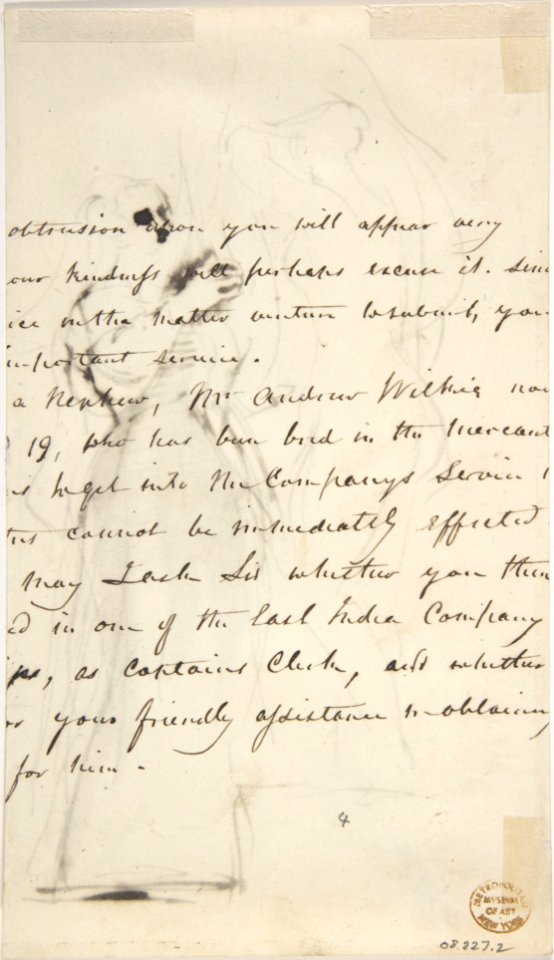 obtrusion upon you will appear very
our kindness will perhaps excuse it. Sin
ice in the matter venture to submit, you
important service.
a Nephew, Mr Andrew Wilkie no
19, who has been bred in the mercant
to get into the Companys Service
cannot be immediately effected
may I ask Sir whether you thin
ed in one of the East India Company
ips, as Captains Clerk, and whether
or your friendly assistance in obtaining
for him -
4
METROPOLITAN
MUSEUM
OF ART
NEW YORK
08.227.2